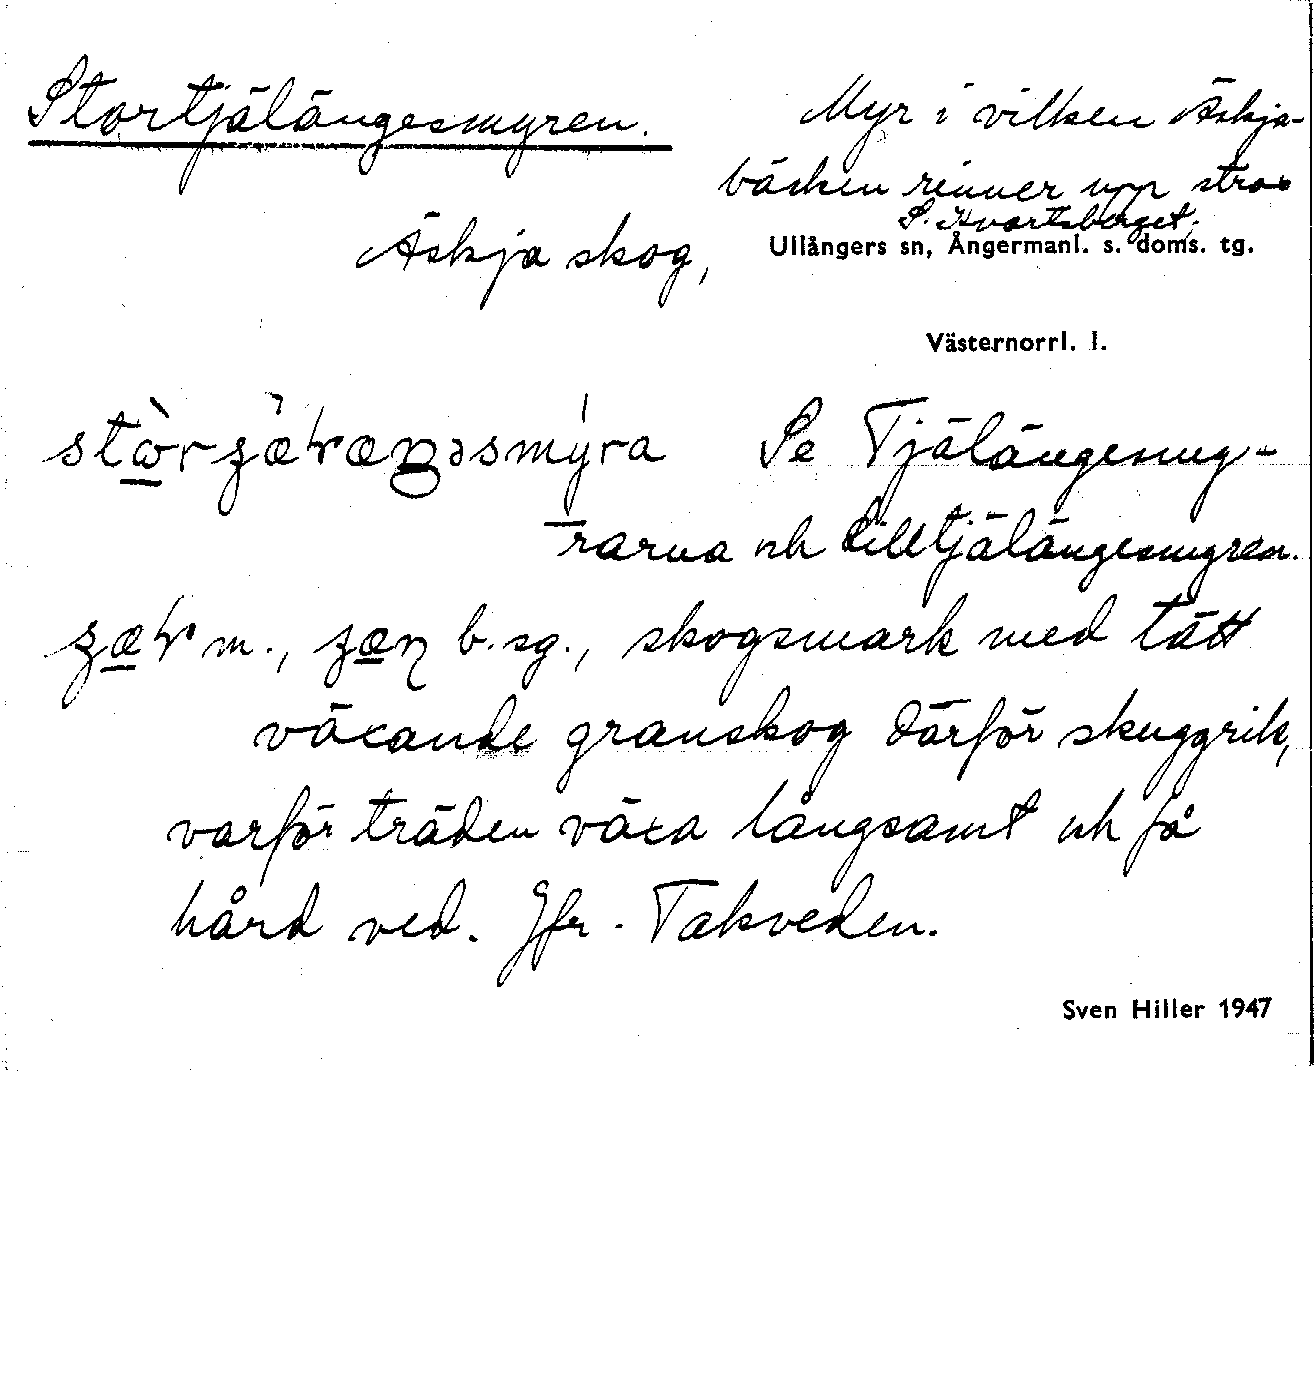 Stortjälängesmyren.
Myr i vilken Äskja-
bäcken rinner upp strax
S. Kvartsberget.
Äskja skog,
Ullångers sn, Ångermanl. s. doms. tg.
Västernorrl. l.
Se Tjälängesmy-
rarna och Lilltjälängesmyren.
m., b. sg., skogsmark med tätt
växande granskog därför skuggrik,
varför träden växa långsamt och få
hård ved. Jfr. Takveden.
Sven Hiller 1947